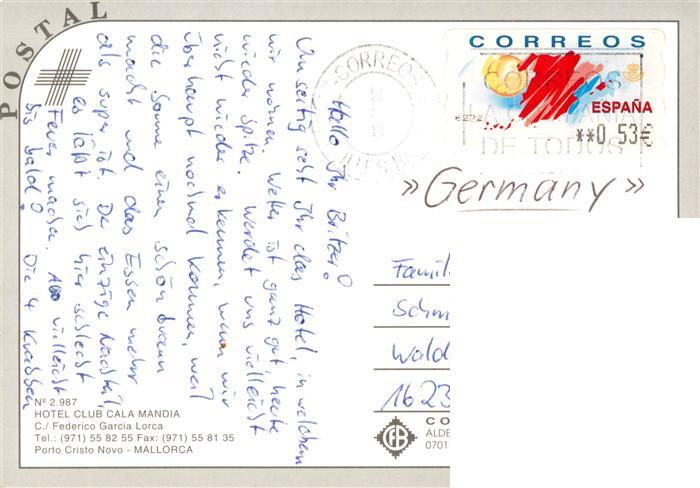 POSTAL
Hallo Ihr Britzer!
Umseitig seht Ihr das Hotel, in welchem
wir wohnen. Wetter ist ganz gut, heute
wieder spitze. Werdet uns vielleicht
nicht wieder erkennen, wenn wir
überhaupt nochmal kommen, weil
die Sonne einen schön braun
macht und das Essen mehr
als super ist. Der einzige Nachteil,
es läßt sich hier schlecht
Feuer machen. Also vielleicht
bis bald! Die 4 Krassen
CORREOS
CORREOS
ESPAÑA
**0,53€
DE TODOS
»Germany»
Famil
Schm
Wald
1623
Nº 2.987
HOTEL CLUB CALA MANDIA
C./ Federico Garcia Lorca
Tel.: (971) 55 82 55 Fax: (971) 55 81 35
Porto Cristo Novo - MALLORCA
CO
ALDE
0701